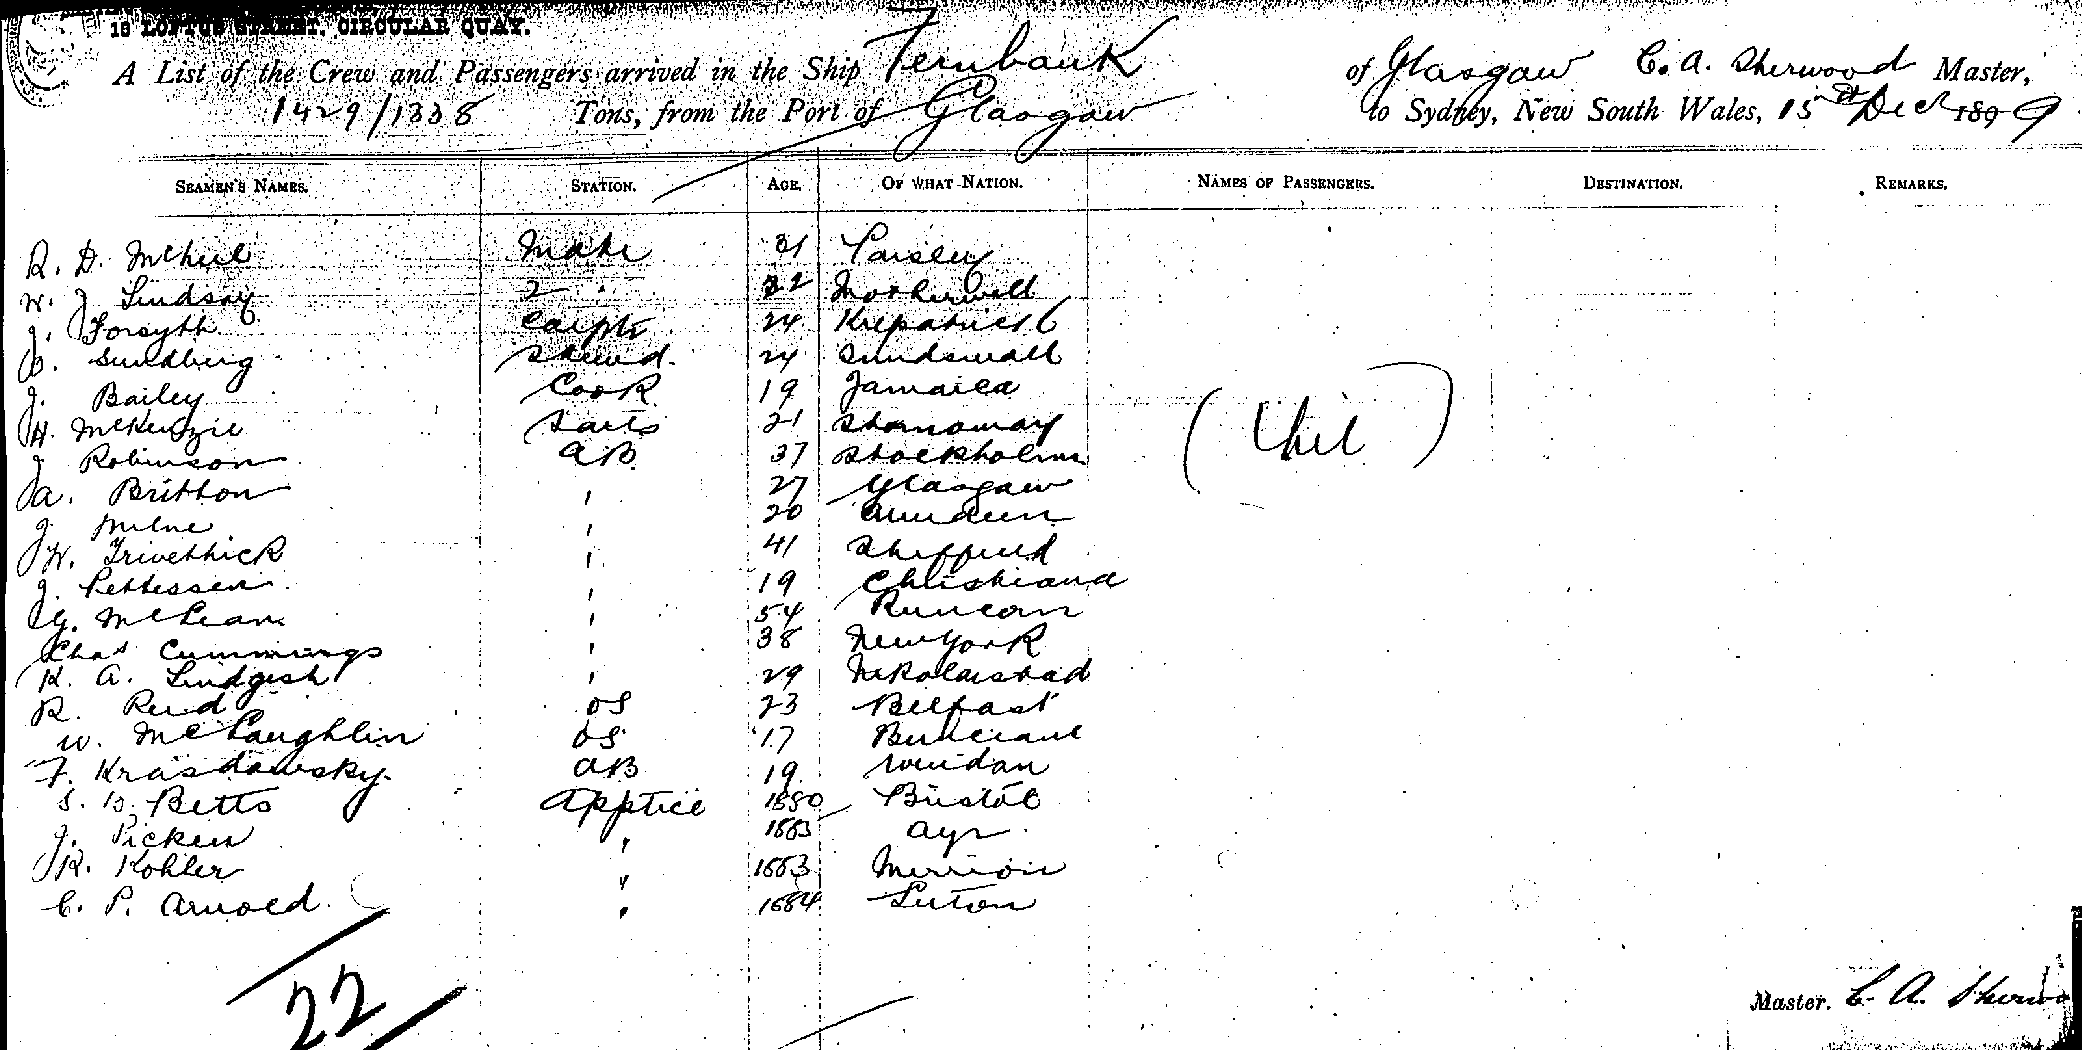 18 LOFTUS STREET, CIRCULAR QUAY.
A List of the Crew and Passengers arrived in the Ship Fernbank of Glasgow C. A. Sherwood Master,
1429/1338 Tons, from the Port of Glasgow to Sydney, New South Wales, 15th Dec 1899
SEAMEN'S NAMES. STATION. AGE. OF WHAT NATION. NAMES OF PASSENGERS. DESTINATION. REMARKS.
R. D. McNeil Mate 31 Paisley
W. J. Lindsay 2 " 32 Motherwell
J. Forsyth Carptr 24 Kilpatrick
Sundberg Stewd. 24 Sundswall
J. Bailey Cook 19 Jamaica
H. McKenzie Sails 21 Stornoway
J. Robinson AB 37 Stockholm
A. Britton " 27 Glasgow
J. Milne " 20 Aberdeen
W. Trivethick " 41 Sheffield
J. Pettessen " 19 Christiand
G. McLean " 54 Runcorn
Chas Cummings " 38 New York
K. A. Lindqish " 29 Nikolaistad
R. Reid OS 23 Belfast
W. McLaughlin OS 17 Buncrane
F. Krasdowsky AB 19
S. B. Betts Apptice 1880 Bristol
J. Picken " 1883 Ayr
R. Kohler " 1883 Merrion
C. P. Arnold " 1884 Luton
(Nil)
22
Master. C. A. Sherwo